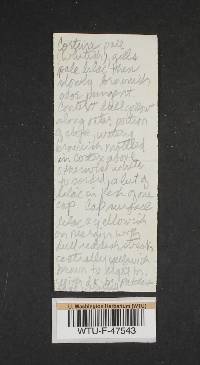 Cortina pale
(whitish), gills
pale lilac then
slowly brownish
odor pungent
Context dull yellow
along outer portion
of stipe, watery
brownish mottled
in cortex above
otherwise white
a hint of
lilac in flesh of
cap. Cap surface
lilac & yellowish
on margin with
dull reddish streaks
centrally yellowish
brown to
U. Washington Herbarium (WTU)
WTU-F-47543